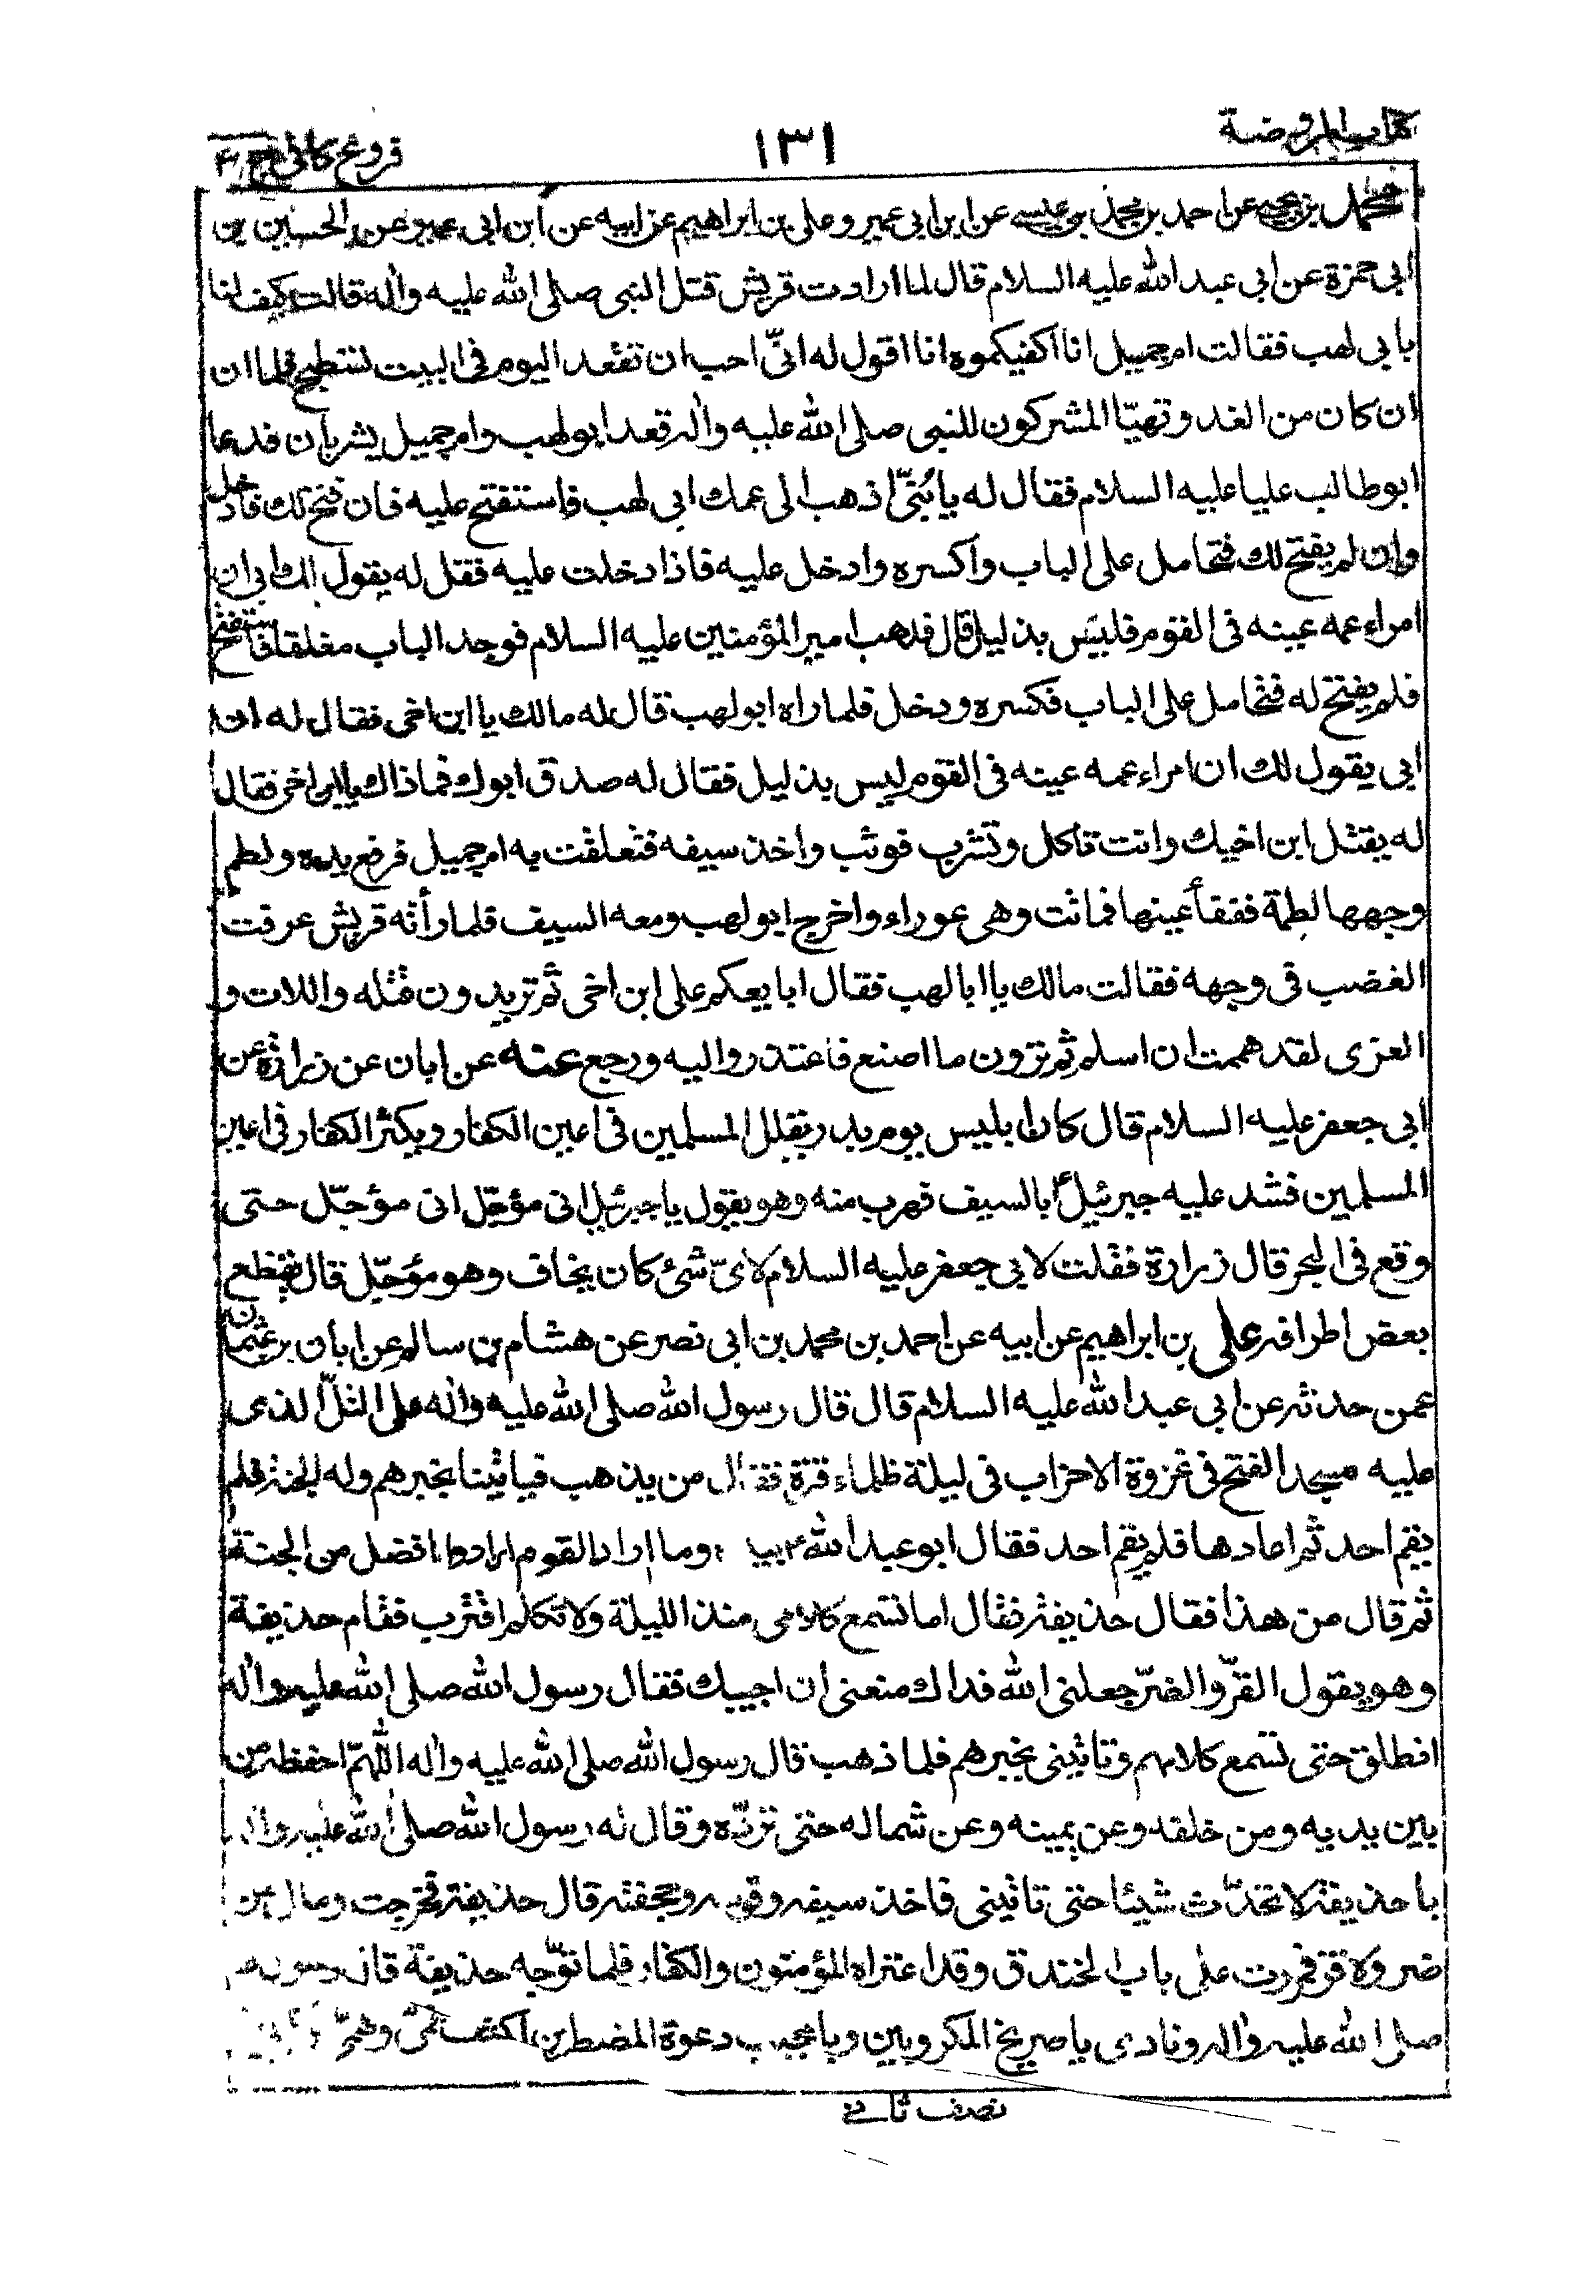 كتاب الروضة
١٣١
فروع كافى ج ٣
محمد بن يحيى عن احمد بن محمد بن عيسى عن ابن ابى عمير وعلى بن ابراهيم عن ابيه عن ابن ابى عمير عن الحسين بن
ابى حمزة عن ابى عبد الله عليه السلام قال لما ارادت قريش قتل النبى صلى الله عليه واله قالت كيف لنا
بابى لهب فقالت ام جميل انا اكفيكموه انا اقول له انّى احب ان تقعد اليوم فى البيت نصطبح فلما ان
ان كان من الغد وتهيّا المشركون للنبى صلى الله عليه واله قعد ابو لهب وام جميل يشربان فدعا
ابو طالب عليا عليه السلام فقال له يا بُنىّ اذهب الى عمك ابى لهب فاستفتح عليه فان فتح لك فادخل
وان لم يفتح لك فتحامل على الباب واكسره وادخل عليه فاذا دخلت عليه فقل له يقول لك ابى ان
امراء عمه عينه فى القوم فليس بذليل قال فذهب امير المؤمنين عليه السلام فوجد الباب مغلقا فاستفتح
فلم يفتح له فتحامل على الباب فكسره ودخل فلما راه ابو لهب قال له مالك يا ابن اخى فقال له ان
ابى يقول لك ان امراء عمه عينه فى القوم ليس بذليل فقال له صدق ابوك فما ذاك يا ابن اخى فقال
له يقتل ابن اخيك وانت تاكل وتشرب فوثب واخذ سيفه فتعلقت به ام جميل فرفع يده ولطم
وجهها لطمة ففقأ عينها فماتت وهى عوراء واخرج ابو لهب ومعه السيف فلما رأته قريش عرفت
الغضب فى وجهه فقالت مالك يا ابا لهب فقال ابايعكم على ابن اخى ثم تريدون قتله واللات و
العزى لقد هممت ان اسلم ثم ترون ما اصنع فاعتذروا اليه ورجع عنه عن ابان عن زرارة عن
ابى جعفر عليه السلام قال كان ابليس يوم بدر يقلل المسلمين فى اعين الكفار ويكثر الكفار فى اعين
المسلمين فشد عليه جبرئيل ع بالسيف فهرب منه وهو يقول يا جبرئيل انى مؤجّل انى مؤجّل حتى
وقع فى البحر قال زرارة فقلت لابى جعفر عليه السلام لاىّ شئ كان يخاف وهو مؤجّل قال يقطع
بعض اطرافه على بن ابراهيم عن ابيه عن احمد بن محمد بن ابى نصر عن هشام بن سالم عن ابان بن عثمان
عمن حدثه عن ابى عبد الله عليه السلام قال قال رسول الله صلى الله عليه واله على التلّ الذى
عليه مسجد الفتح فى غزوة الاحزاب فى ليلة ظلماء قرة فقال من يذهب فياتينا بخبرهم وله الجنة فلم
يقم احد ثم اعادها فلم يقم احد فقال ابو عبد الله بيده وما اراد القوم ارادوا افضل من الجنة
ثم قال من هذا فقال حذيفة فقال اما تسمع كلامى منذ الليلة ولا تكلم اقترب فقام حذيفة
وهو يقول القرّ والضرّ جعلنى الله فداك منعنى ان اجيبك فقال رسول الله صلى الله عليه واله
انطلق حتى تسمع كلامهم وتاتينى بخبرهم فلما ذهب قال رسول الله صلى الله عليه واله اللهمّ احفظه من
بين يديه ومن خلفه وعن يمينه وعن شماله حتى تردّه وقال له رسول الله صلى الله عليه واله
يا حذيفة لا تحدّث شيئا حتى تاتينى فاخذ سيفه وقوسه وحجفته قال حذيفة فخرجت وما بى من
ضر ولا قر فمررت على باب الخندق وقد اعتراه المؤمنون والكفار فلما توّجه حذيفة قام رسول الله
صلى الله عليه واله ونادى يا صريخ المكروبين ويا مجيب دعوة المضطرين اكشف همّى وغمّى
نصف ثانى